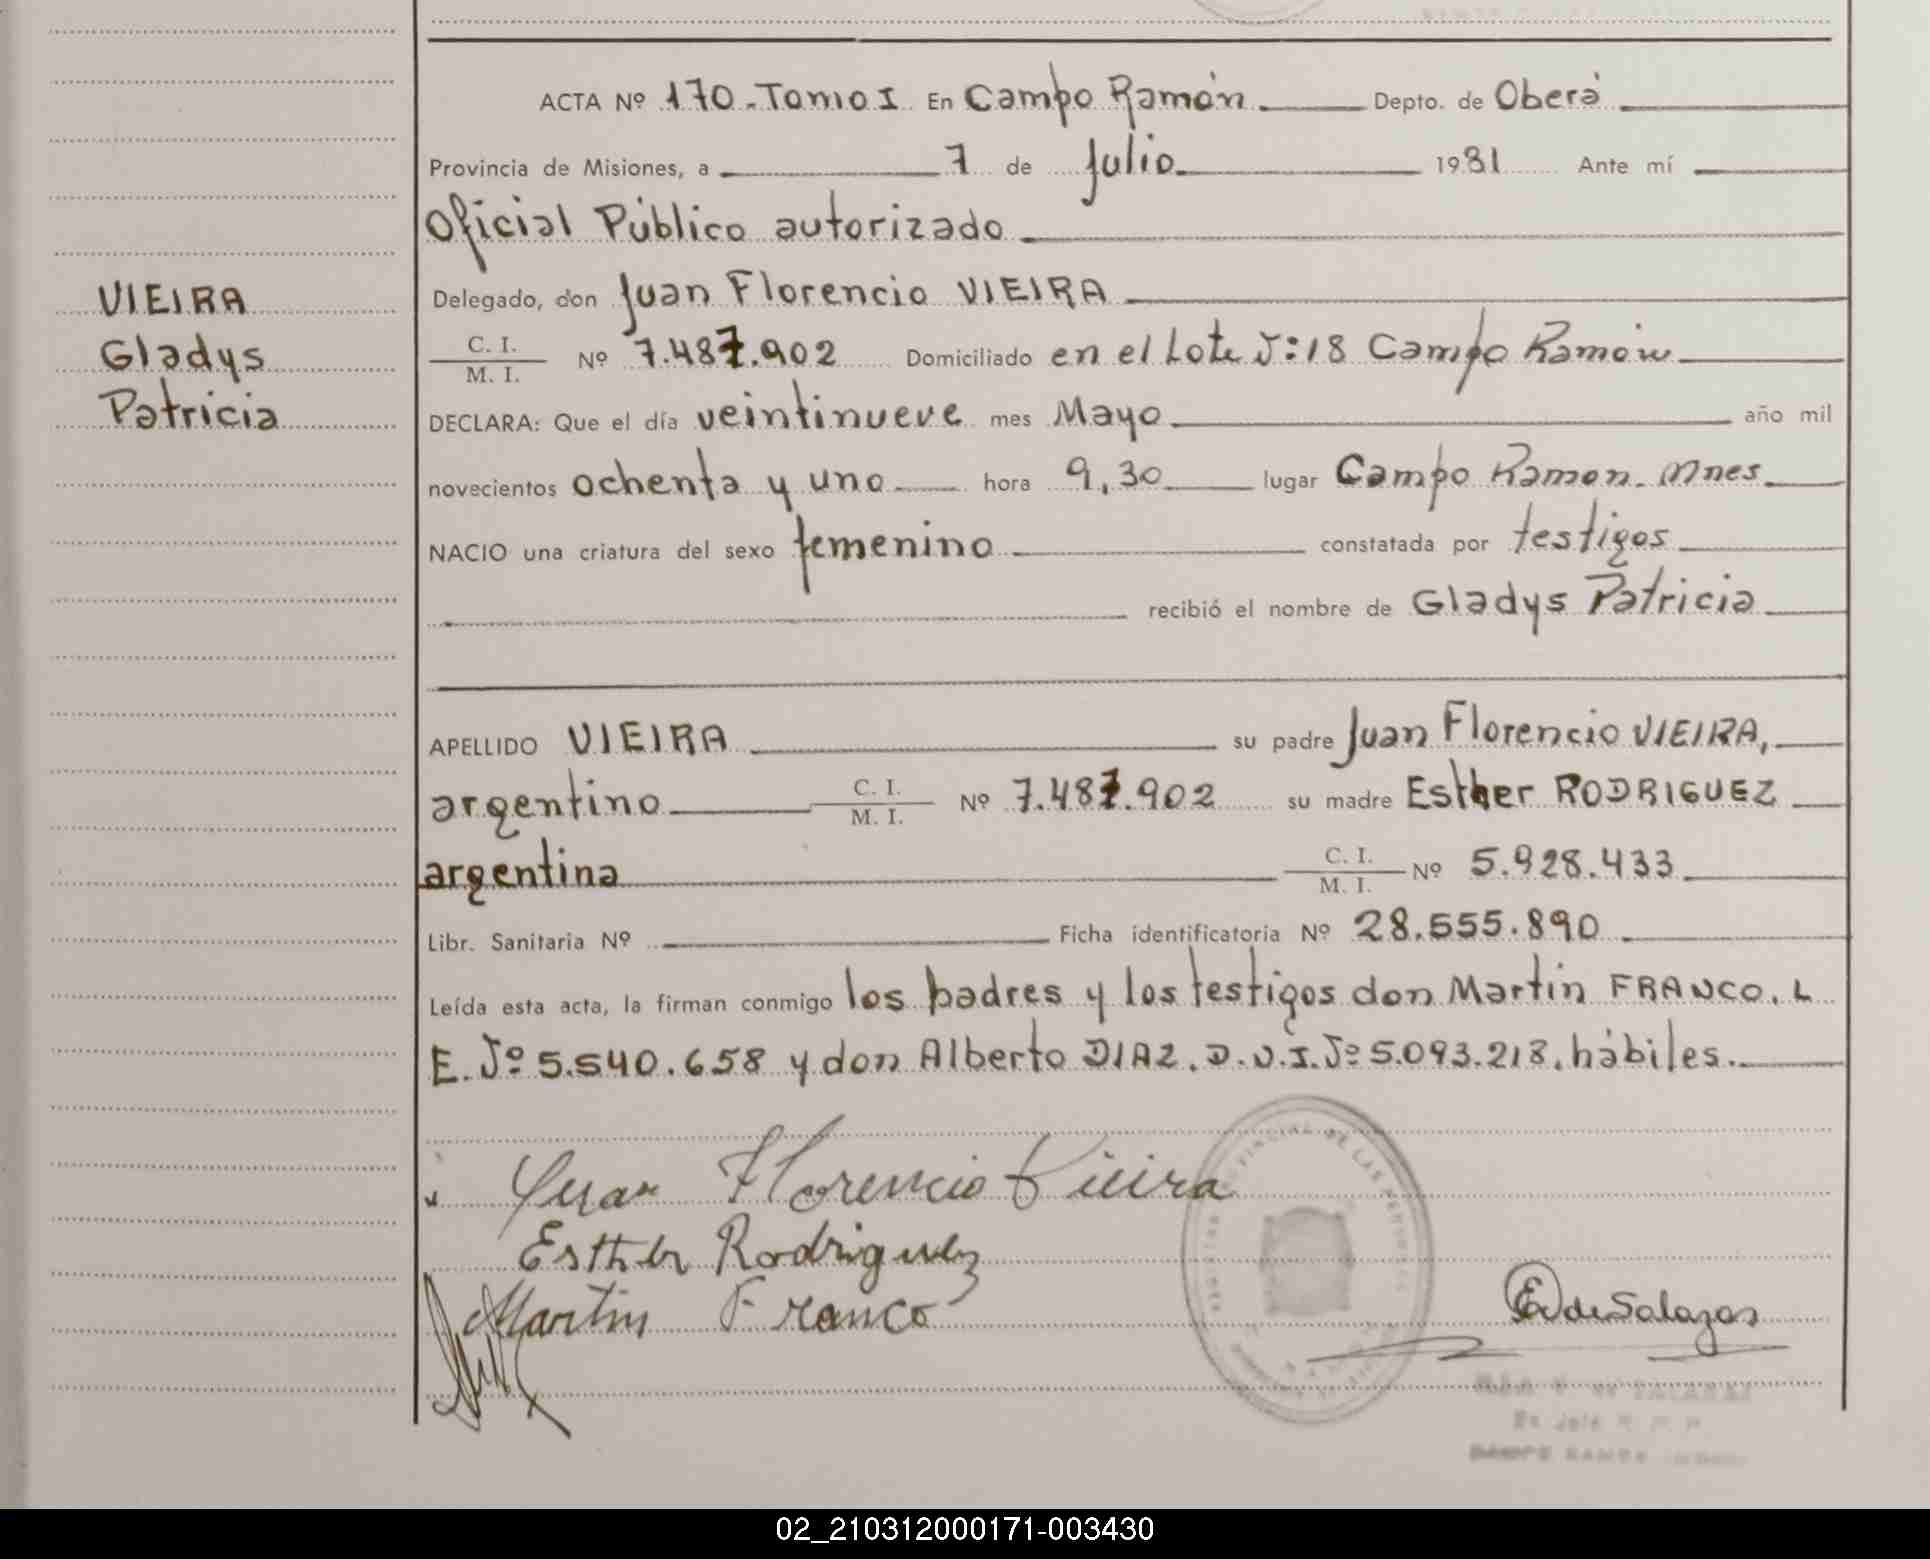 ACTA Nº 170.Tomo I En Campo Ramón Depto. de Oberá
Provincia de Misiones, a 7 de Julio 1981 Ante mí
Oficial Público autorizado
VIEIRA
Gladys
Patricia
Delegado, don Juan Florencio VIEIRA
C. I.
M. I. Nº 7.487.902 Domiciliado en el Lote Nº:18 Campo Ramón
DECLARA: Que el día veintinueve mes Mayo año mil
novecientos ochenta y uno hora 9,30 lugar Campo Ramon. Mnes
NACIO una criatura del sexo femenino constatada por testigos
recibió el nombre de Gladys Patricia
APELLIDO VIEIRA su padre Juan Florencio VIEIRA,
argentino C. I.
M. I. Nº 7.487.902 su madre Esther RODRIGUEZ
argentina C. I.
M. I. Nº 5.928.433
Libr. Sanitaria Nº Ficha identificatoria Nº 28.555.890
Leída esta acta, la firman conmigo los padres y los testigos don Martin FRANCO. L
E. Nº 5.540.658 y don Alberto DIAZ. D.N.I. Nº 5.093.218. hábiles.
Juan Florencio Vieira
Esther Rodriguez
Martin Franco
de Salazar
02_210312000171-003430